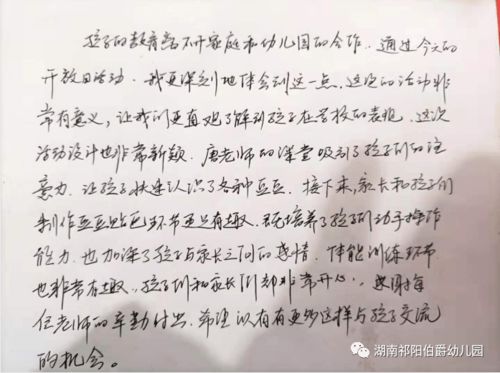 孩子的教育离不开家庭和幼儿园的合作。通过今天的
开放日活动，我更深刻地体会到这一点，这次的活动非
常有意义，让我们更直观了解到孩子在学校的表现。这次
活动设计也非常新颖。唐老师的课堂吸引了孩子们的注
意力，让孩子快速认识了各种豆豆。接下来，家长和孩子们
制作豆豆贴画环节更是有趣。既培养了孩子们动手操作
能力，也加深了孩子与家长之间的感情。体能训练环节
也非常有趣，孩子们和家长们都非常开心，感谢每
位老师的辛勤付出，希望以后有更多这样与孩子交流
的机会。
湖南祁阳伯爵幼儿园